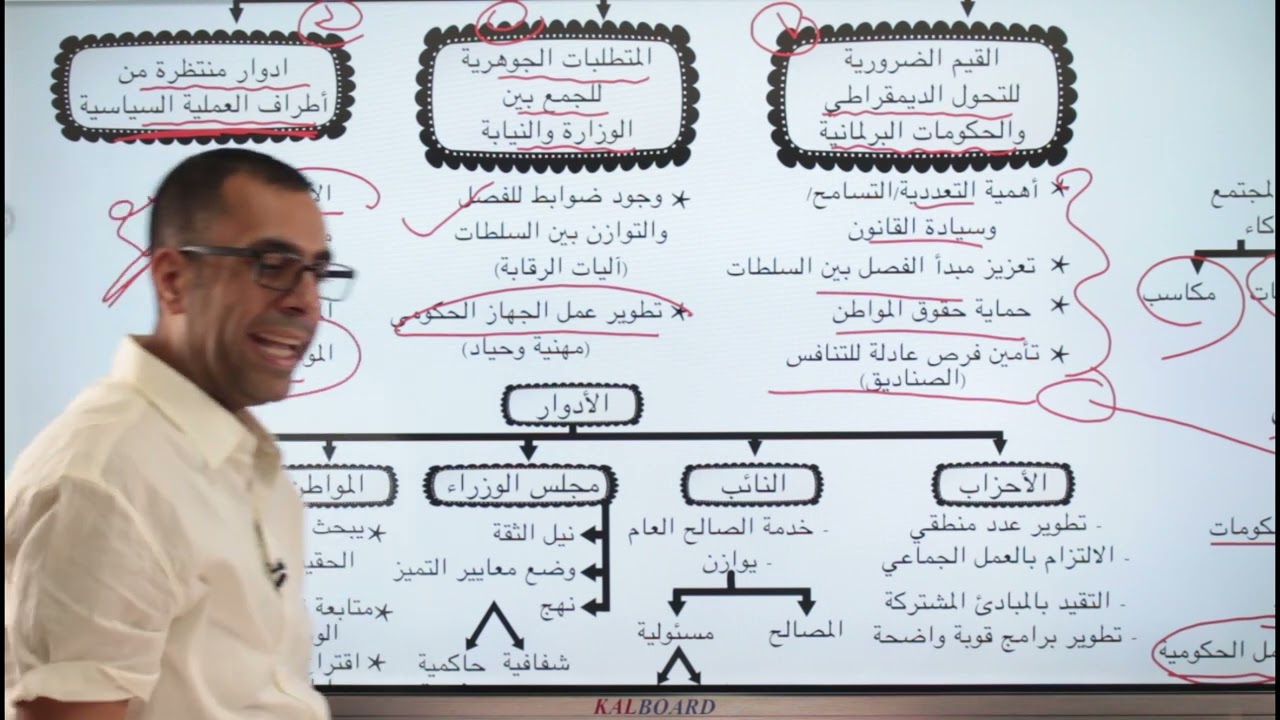 القيم الضرورية
للتحول الديمقراطي
والحكومات البرلمانية
* أهمية التعددية/التسامح/
وسيادة القانون
* تعزيز مبدأ الفصل بين السلطات
* حماية حقوق المواطن
* تأمين فرص عادلة للتنافس
(الصناديق)
المتطلبات الجوهرية
للجمع بين
الوزارة والنيابة
* وجود ضوابط للفصل
والتوازن بين السلطات
(آليات الرقابة)
* تطوير عمل الجهاز الحكومي
(مهنية وحياد)
ادوار منتظرة من
أطراف العملية السياسية
مكاسب
الأدوار
الأحزاب
- تطوير عدد منطقي
- الالتزام بالعمل الجماعي
- التقيد بالمبادئ المشتركة
- تطوير برامج قوية واضحة
النائب
- خدمة الصالح العام
- يوازن
المصالح
مسئولية
مجلس الوزراء
نيل الثقة
وضع معايير التميز
نهج
شفافية
حاكمية
* يبحث
* متابعة
الحكومية
KALBOARD